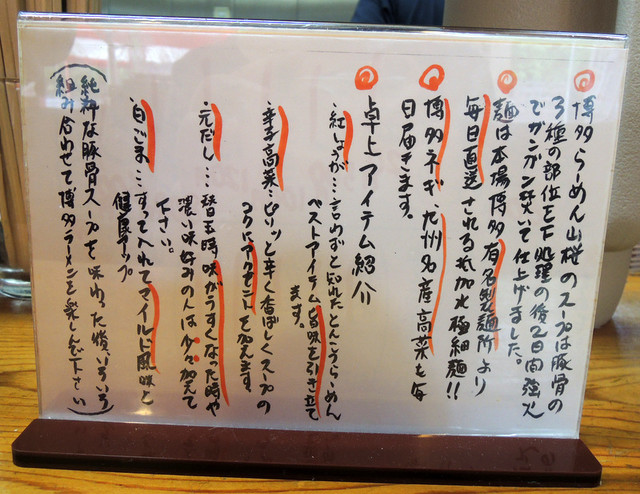 博多らーめん山桜のスープは豚骨の
3種の部位を下処理の後2日間強火
でガンガン焚いて仕上げました。
麺は本場博多有名製麺所より
毎日直送される低加水極細麺!!
博多ネギ、九州名産高菜も毎
日届きます。
卓上アイテム紹介
紅しょうが…言わずと知れたとんこつらーめん
ベストアイテム 旨味を引き立て
ます。
辛子高菜…ピリッと辛く香ばしくスープの
コクにアクセントを加えます。
元だし… 替玉時味がうすくなった時や
濃い味好みの人は少々加えて
下さい。
白ごま…すって入れてマイルド風味と
健康アップ
(純粋な豚骨スープを味わった後、いろいろ
組み合わせて博多ラーメンを楽しんで下さい)